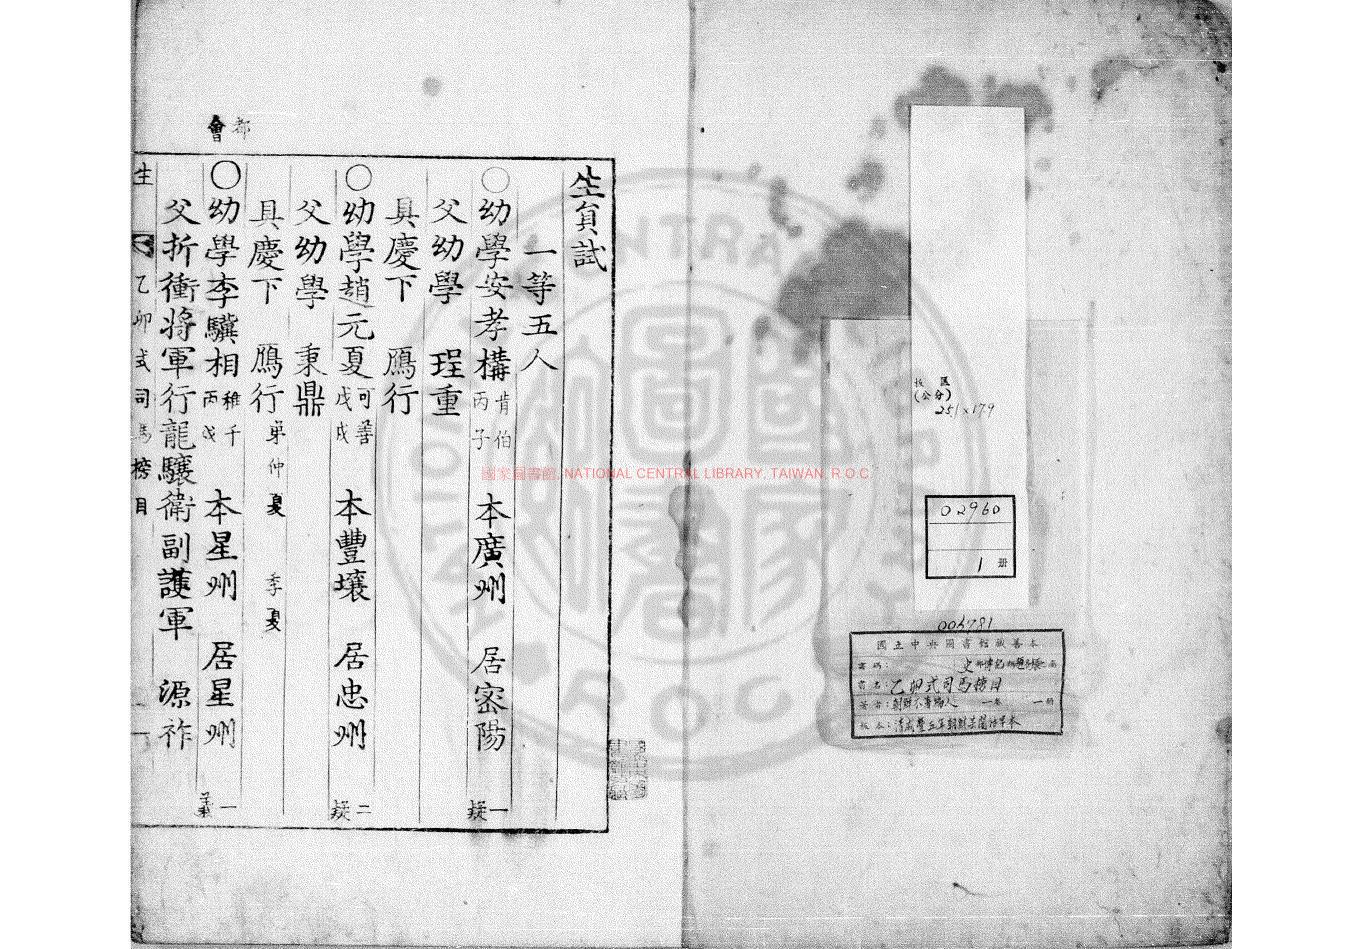 生負試
一等五人
〇幼學安孝構 肯伯 丙子 本廣州 居密陽 一疑
父幼學 珵重
具慶下 鴈行
〇幼學趙元夏 可善 戊戌 本豐壤 居忠州 二疑
父幼學 秉鼎
具慶下 鴈行 弟仲夏 季夏
都會
〇幼學李驥相 稚千 丙戌 本星州 居星州 一義
父折衝將軍行龍驤衛副護軍 源祚
生 乙卯式司馬榜目 一
國家圖書館, NATIONAL CENTRAL LIBRARY, TAIWAN, R.O.C
板匡
(公分)
251×179
02960
1 册
006781
國立中央圖書館藏善本
書名:乙卯式司馬榜目